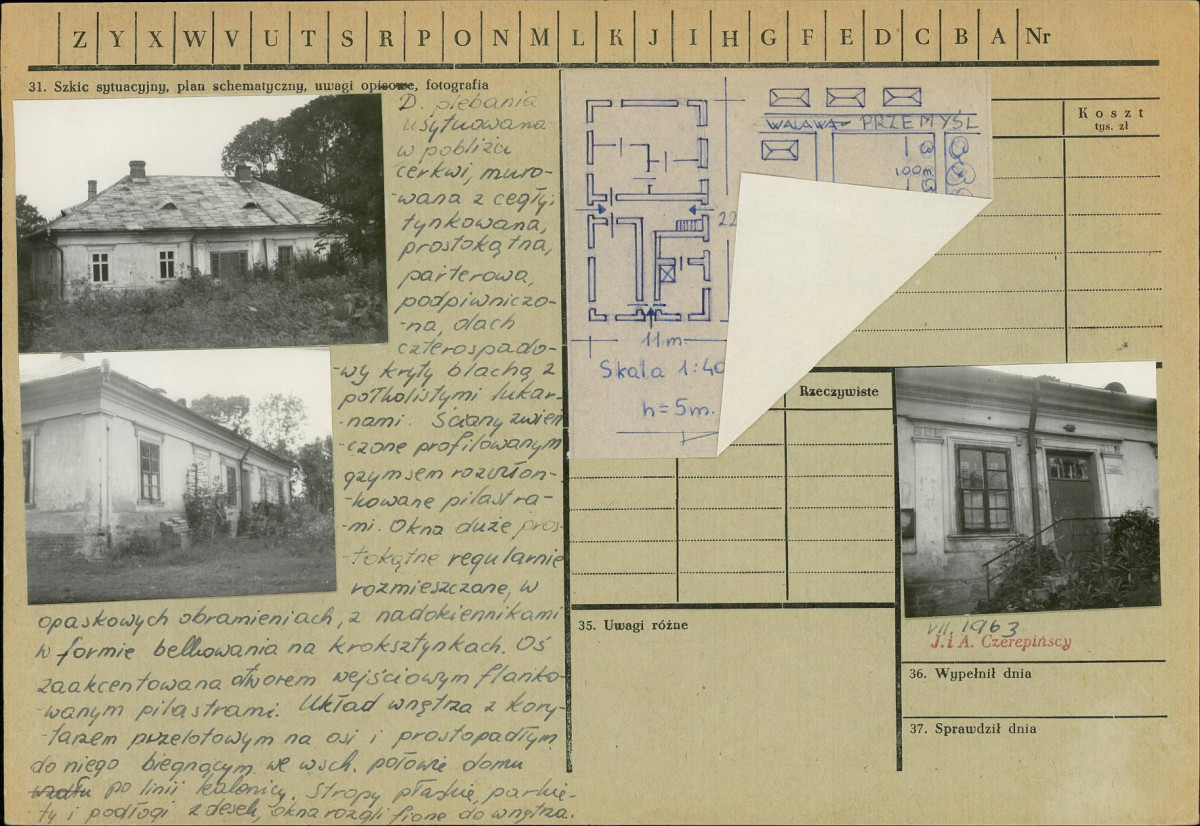 Z Y X W V U T S R P O N M L K J I H G F E D C B A Nr
31. Szkic sytuacyjny, plan schematyczny, uwagi opisowe, fotografia
D. plebania
usytuowana
w pobliżu
cerkwi, muro-
-wana z cegły;
tynkowana,
prostokątna,
parterowa,
podpiwniczo-
-na, dach
czterospado-
-wy kryty blachą z
półkolistymi lukar-
-nami. Ściany zwień
-czone profilowanym
gzymsem rozczłon-
-kowane pilastra-
-mi. Okna duże pros-
-tokątne regularnie
rozmieszczane, w
opaskowych obramieniach, z nadokiennikami
w formie belkowania na kroksztynkach. Oś
zaakcentowana otworem wejściowym flanko-
-wanym pilastrami. Układ wnętrza z kory-
-tarzem przelotowym na osi i prostopadłym
do niego biegnącym we wsch. połowie domu
po linii kalenicy. Stropy płaskie, parkie-
-ty i podłogi z desek, okna rozglifione do wnętrza.
WALAWA - PRZEMYŚL
100m
22
11 m
Skala 1:40
h = 5 m.
Koszt
tys. zł
Rzeczywiste
35. Uwagi różne
VII. 1963
J. i A. Czerepińscy
36. Wypełnił dnia
37. Sprawdził dnia